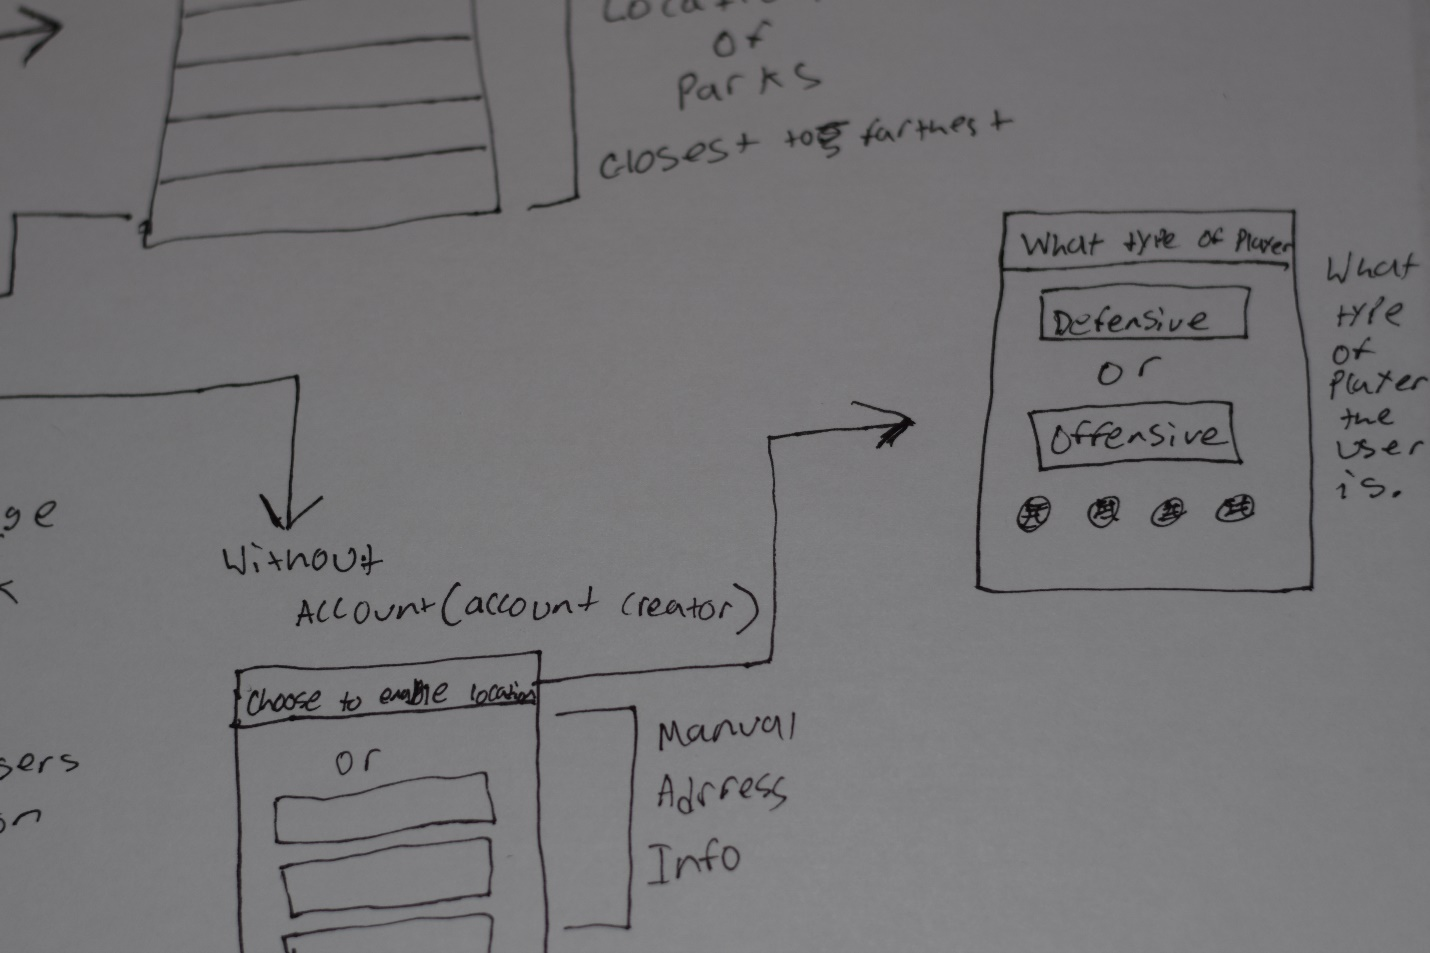 of
Parks
closest to farthest
What type of Player
Defensive
or
Offensive
What
type
of
Player
the
user
is.
Without
Account (account creator)
Choose to enable location
or
Manual
Adrress
Info